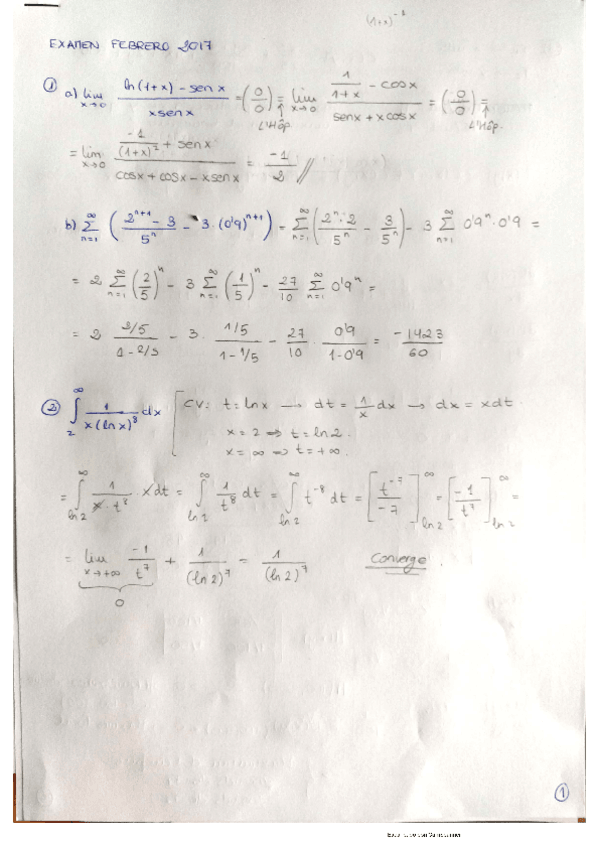 (1+x)^-1
EXAMEN FEBRERO 2017
① a) lim x→0 (ln(1+x) - sen x)/(x sen x) = (0/0) =↑ L'Hôp. lim x→0 (1/(1+x) - cos x)/(sen x + x cos x) = (0/0) =↑ L'Hôp.
= lim x→0 (-1/(1+x)^2 + sen x)/(cos x + cos x - x sen x) = -1/2 //
b) ∑ n=1 ∞ ( (2^{n+1} - 3)/5^n - 3·(0'9)^{n+1} ) = ∑ n=1 ∞ ( (2^n·2)/5^n - 3/5^n ) - 3 ∑ n=1 ∞ 0'9^n·0'9 =
= 2 ∑ n=1 ∞ (2/5)^n - 3 ∑ n=1 ∞ (1/5)^n - 27/10 ∑ n=1 ∞ 0'9^n =
= 2 (2/5)/(1 - 2/5) - 3 · (1/5)/(1 - 1/5) - 27/10 · 0'9/(1-0'9) = -1423/60
② ∫ 2 ∞ 1/(x(ln x)^8) dx [ CV: t = ln x → dt = 1/x dx → dx = x dt.
x = 2 ⇒ t = ln 2.
x = ∞ ⇒ t = +∞.
= ∫ ln 2 ∞ 1/(x·t^8) · x dt = ∫ ln 2 ∞ 1/t^8 dt = ∫ ln 2 ∞ t^-8 dt = [t^-7/-7] ln 2 ∞ = [-1/t^7] ln 2 ∞ =
= lim x→+∞ -1/t^7 + 1/(ln 2)^7 = 1/(ln 2)^7 Converge.
0
①